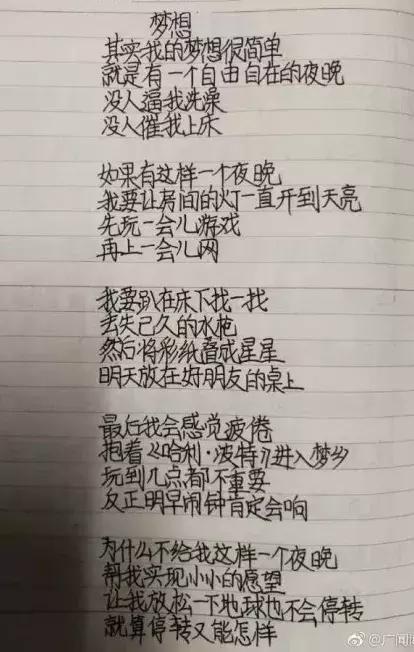 梦想
其实我的梦想很简单
就是有一个自由自在的夜晚
没人逼我洗澡
没人催我上床
如果有这样一个夜晚
我要让房间的灯一直开到天亮
先玩一会儿游戏
再上一会儿网
我要趴在床下找一找
丢失已久的水枪
然后将彩纸叠成星星
明天放在好朋友的桌上
最后我会感觉疲倦
抱着《哈利·波特》进入梦乡
玩到几点都不重要
反正明早闹钟肯定会响
为什么不给我这样一个夜晚
帮我实现小小的愿望
让我放松一下地球也不会停转
就算停转又能怎样
@广闻